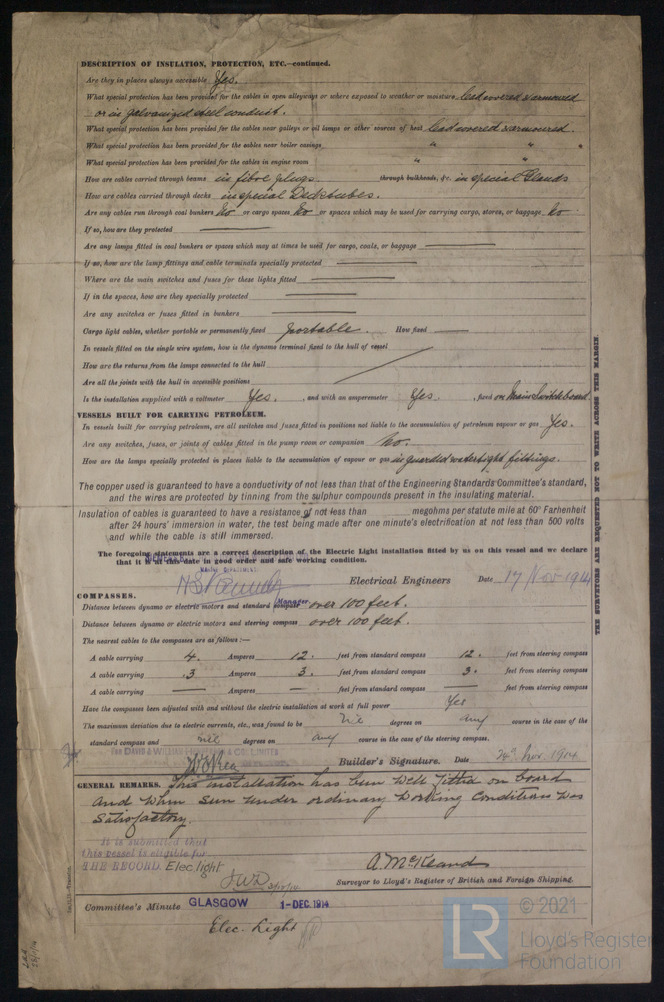 DESCRIPTION OF INSULATION, PROTECTION, ETC.—continued.
Are they in places always accessible Yes.
What special protection has been provided for the cables in open alleyways or where exposed to weather or moisture lead covered & armoured
or in galvanized steel conduit.
What special protection has been provided for the cables near galleys or oil lamps or other sources of heat lead covered & armoured.
What special protection has been provided for the cables near boiler casings " " "
What special protection has been provided for the cables in engine room " "
How are cables carried through beams in fibre plugs. through bulkheads, &c. in special Glands
How are cables carried through decks in special Decktubes.
Are any cables run through coal bunkers No or cargo spaces No or spaces which may be used for carrying cargo, stores, or baggage No
If so, how are they protected
Are any lamps fitted in coal bunkers or spaces which may at times be used for cargo, coals, or baggage
If so, how are the lamp fittings and cable terminals specially protected
Where are the main switches and fuses for these lights fitted
If in the spaces, how are they specially protected
Are any switches or fuses fitted in bunkers
Cargo light cables, whether portable or permanently fixed portable. How fixed
In vessels fitted on the single wire system, how is the dynamo terminal fixed to the hull of vessel
How are the returns from the lamps connected to the hull
Are all the joints with the hull in accessible positions
Is the installation supplied with a voltmeter Yes. , and with an amperemeter Yes. , fixed on Main Switchboard.
VESSELS BUILT FOR CARRYING PETROLEUM.
In vessels built for carrying petroleum, are all switches and fuses fitted in positions not liable to the accumulation of petroleum vapour or gas Yes.
Are any switches, fuses, or joints of cables fitted in the pump room or companion No.
How are the lamps specially protected in places liable to the accumulation of vapour or gas in guarded watertight fittings.
The copper used is guaranteed to have a conductivity of not less than that of the Engineering Standards Committee's standard,
and the wires are protected by tinning from the sulphur compounds present in the insulating material.
Insulation of cables is guaranteed to have a resistance of not less than megohms per statute mile at 60° Farhenheit
after 24 hours' immersion in water, the test being made after one minute's electrification at not less than 500 volts
and while the cable is still immersed.
The foregoing statements are a correct description of the Electric Light installation fitted by us on this vessel and we declare
that it is at this date in good order and safe working condition.
Manager Electrical Engineers Date 17 Nov 1914
COMPASSES.
Distance between dynamo or electric motors and standard compass over 100 feet.
Distance between dynamo or electric motors and steering compass over 100 feet.
The nearest cables to the compasses are as follows:—
A cable carrying 4. Amperes 12. feet from standard compass 12. feet from steering compass
A cable carrying .3 Amperes 3. feet from standard compass 3. feet from steering compass
A cable carrying — Amperes — feet from standard compass — feet from steering compass
Have the compasses been adjusted with and without the electric installation at work at full power Yes
The maximum deviation due to electric currents, etc., was found to be nil degrees on any course in the case of the
standard compass and nil degrees on any course in the case of the steering compass.
FOR DAVID & WILLIAM HENDERSON & CO. LIMITED
Builder's Signature. Date 24th Nov. 1914
GENERAL REMARKS. This installation has been well fitted on board
and when seen under ordinary working conditions was
satisfactory.
It is submitted that
this vessel is eligible for
THE RECORD. Elec. light
A. McKeand
Surveyor to Lloyd's Register of British and Foreign Shipping.
Committee's Minute GLASGOW 1-DEC. 1914
Elec. Light
THE SURVEYORS ARE REQUESTED NOT TO WRITE ACROSS THIS MARGIN.
LR
© 2021
Lloyd's Register
Foundation